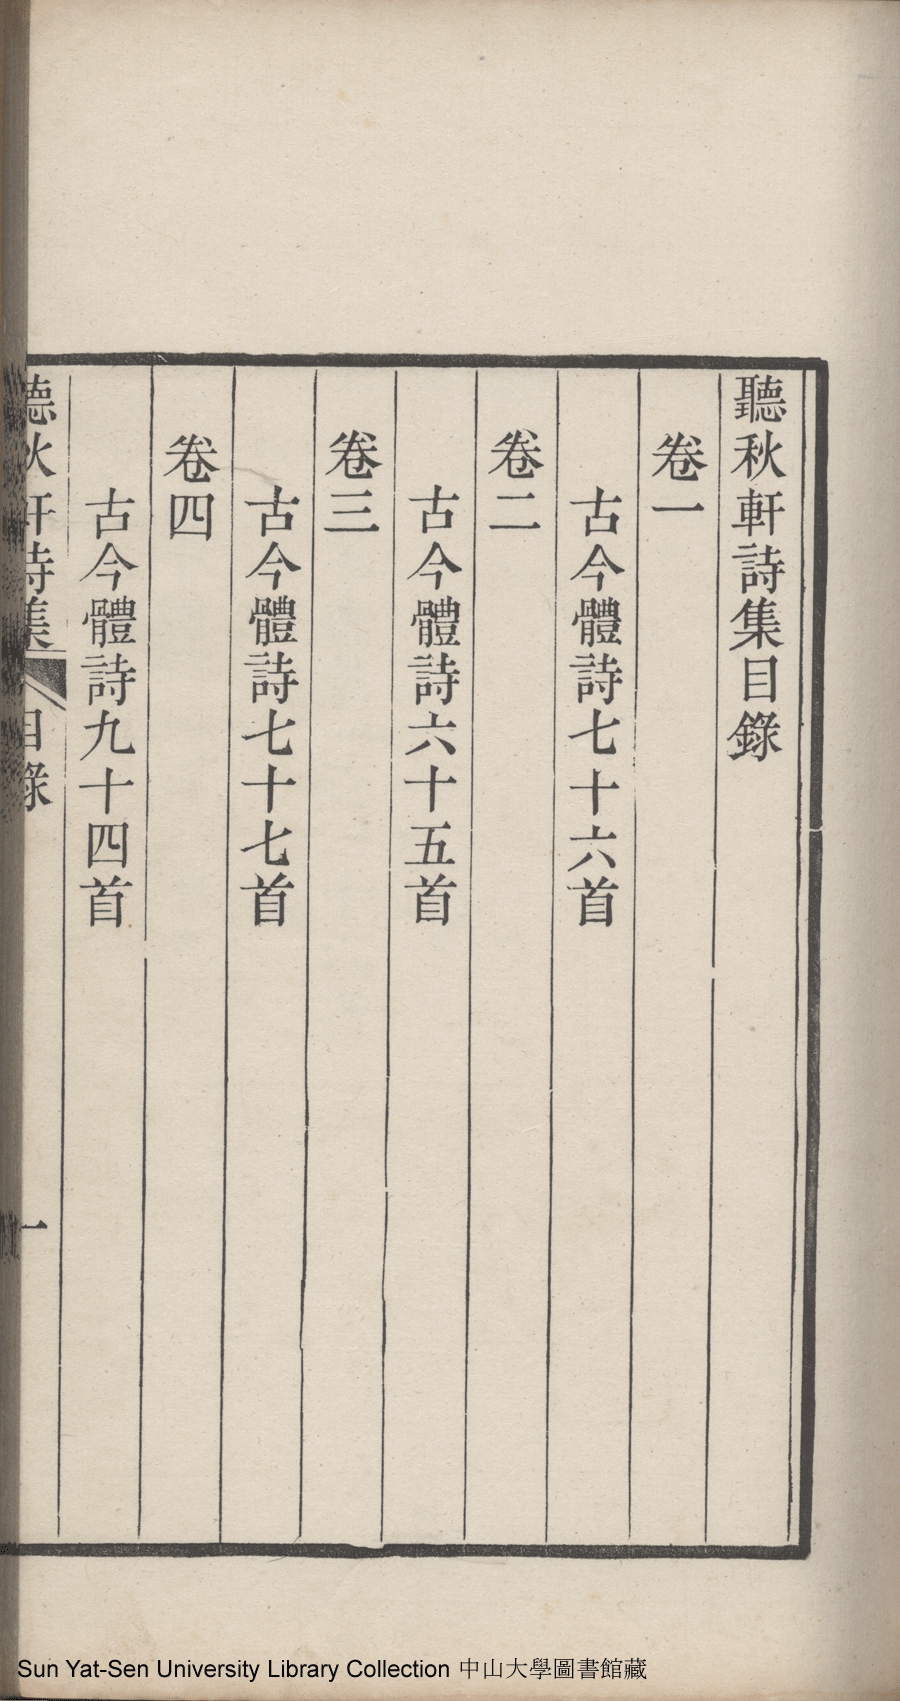 聽秋軒詩集目錄
卷一
古今體詩七十六首
卷二
古今體詩六十五首
卷三
古今體詩七十七首
卷四
古今體詩九十四首
聽秋軒詩集 目錄 一
Sun Yat-Sen University Library Collection 中山大學圖書館藏